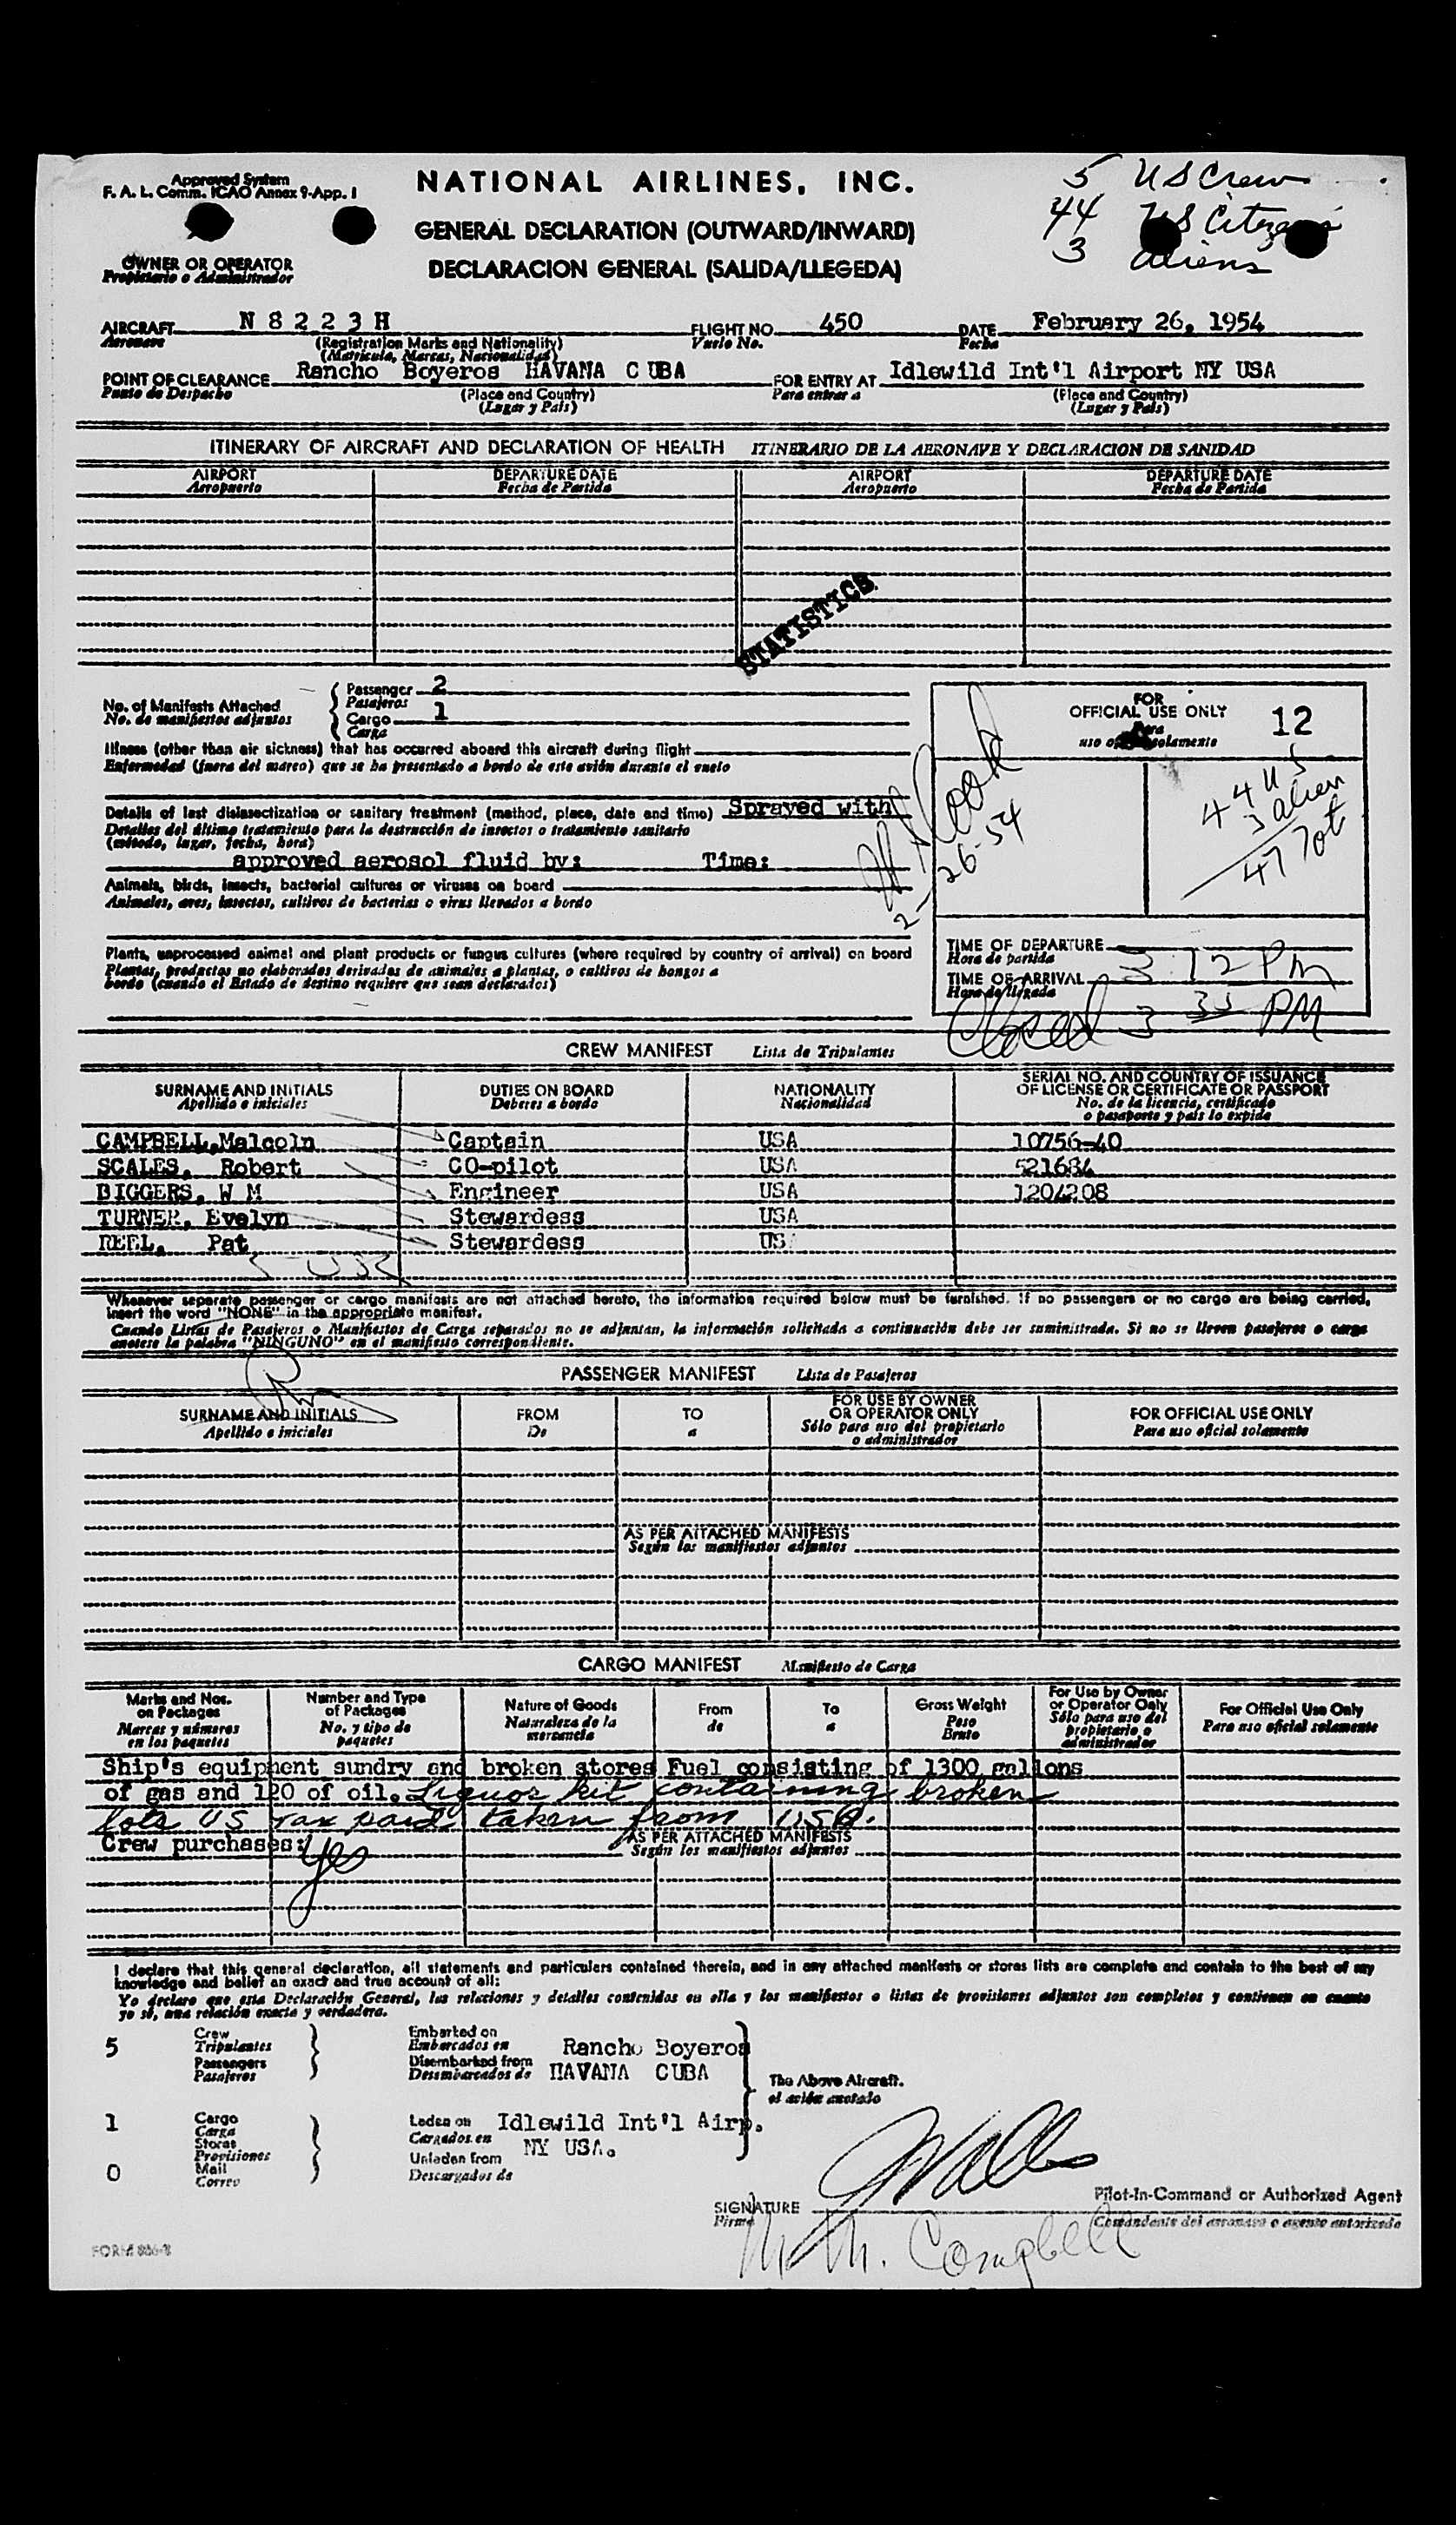 Approved System
F. A. L. Comm. ICAO Annex 9-App. 1
NATIONAL AIRLINES, INC.
5 US Crew
44 US Citizens
3 aliens
GENERAL DECLARATION (OUTWARD/INWARD)
DECLARACION GENERAL (SALIDA/LLEGEDA)
OWNER OR OPERATOR
Propietario o Administrador
AIRCRAFT N 8 2 2 3 H FLIGHT NO. 450 DATE February 26, 1954
Aeronave (Registration Marks and Nationality) Vuelo No. Fecha
(Matricula, Marcas, Nacionalidad)
POINT OF CLEARANCE Rancho Boyeros HAVANA CUBA FOR ENTRY AT Idlewild Int'l Airport NY USA
Punto de Despacho (Place and Country) Para entrar a (Place and Country)
(Lugar y País) (Lugar y País)
ITINERARY OF AIRCRAFT AND DECLARATION OF HEALTH ITINERARIO DE LA AERONAVE Y DECLARACION DE SANIDAD
AIRPORT DEPARTURE DATE AIRPORT DEPARTURE DATE
Aeropuerto Fecha de Partida Aeropuerto Fecha de Partida
STATISTICS
No. of Manifests Attached Passenger 2
No. de manifiestos adjuntos Pasajeros
Cargo 1
Carga
FOR
OFFICIAL USE ONLY 12
Para
uso solamente
Illness (other than air sickness) that has occurred aboard this aircraft during flight
Enfermedad (fuera del mareo) que se ha presentado a bordo de este avión durante el vuelo
Details of last disinsectization or sanitary treatment (method, place, date and time) Sprayed with
Detalles del último tratamiento para la destrucción de insectos o tratamiento sanitario
(método, lugar, fecha, hora)
approved aerosol fluid by: Time:
Cook
2-26-54
44 US
3 alien
47 Tot
Animals, birds, insects, bacterial cultures or viruses on board
Animales, aves, insectos, cultivos de bacterias o virus llevados a bordo
Plants, unprocessed animal and plant products or fungus cultures (where required by country of arrival) on board
Plantas, productos no elaborados derivados de animales a plantas, o cultivos de hongos a
bordo (cuando el Estado de destino requiere que sean declarados)
TIME OF DEPARTURE
Hora de partida
TIME OF ARRIVAL 3 12 PM
Hora de llegada
Closed 3 35 PM
CREW MANIFEST Lista de Tripulantes
SURNAME AND INITIALS DUTIES ON BOARD NATIONALITY SERIAL NO. AND COUNTRY OF ISSUANCE
OF LICENSE OR CERTIFICATE OR PASSPORT
Apellido e iniciales Deberes a bordo Nacionalidad No. de la licencia, certificado
o pasaporte y país lo expide
CAMPBELL, Malcoln Captain USA 10756-40
SCALES, Robert CO-pilot USA 521684
BIGGERS, W M Engineer USA 1204208
TURNER, Evelyn Stewardess USA
REEL, Pat Stewardess US
Whenever separate passenger or cargo manifests are not attached hereto, the information required below must be furnished. If no passengers or no cargo are being carried,
insert the word "NONE" in the appropriate manifest.
Cuando Listas de Pasajeros o Manifiestos de Carga separados no se adjuntan, la información solicitada a continuación debe ser suministrada. Si no se lleven pasajeros o carga
anotese la palabra "NINGUNO" en el manifiesto correspondiente.
PASSENGER MANIFEST Lista de Pasajeros
SURNAME AND INITIALS FROM TO FOR USE BY OWNER
OR OPERATOR ONLY FOR OFFICIAL USE ONLY
Apellido e iniciales De a Sólo para uso del propietario
o administrador Para uso oficial solamente
AS PER ATTACHED MANIFESTS
Según los manifiestos adjuntos
CARGO MANIFEST Manifiesto de Carga
Marks and Nos.
on Packages
Marcas y números
en los paquetes
Number and Type
of Packages
No. y tipo de
paquetes
Nature of Goods
Naturaleza de la
mercancia
From
de
To
a
Gross Weight
Peso
Bruto
For Use by Owner
or Operator Only
Sólo para uso del
propietario o
administrador
For Official Use Only
Para uso oficial solamente
Ship's equipment sundry and broken stores Fuel consisting of 1300 gallons
of gas and 120 of oil. Liquor kit containing broken
lots US tax paid taken from USA.
Crew purchases: Yes
AS PER ATTACHED MANIFESTS
Según los manifiestos adjuntos
I declare that this general declaration, all statements and particulars contained therein, and in any attached manifests or stores lists are complete and contain to the best of my
knowledge and belief an exact and true account of all:
Yo declaro que esta Declaración General, las relaciones y detalles contenidos en ella y los manifiestos o listas de provisiones adjuntos son completos y contienen en cuanto
yo sé, una relación exacta y verdadera.
5 Crew
Tripulantes
Passengers
Pasajeros
Embarked on
Embarcados en
Disembarked from
Desembarcados de
Rancho Boyeros
HAVANA CUBA
The Above Aircraft.
el avión anotado
1 Cargo
Carga
Stores
Provisiones
0 Mail
Correo
Laden on
Cargados en
Unladen from
Descargados de
Idlewild Int'l Airp.
NY USA.
SIGNATURE Pilot-In-Command or Authorized Agent
Firma Comandante del aeronave o agente autorizado
M. M. Campbell
FORM 866-B